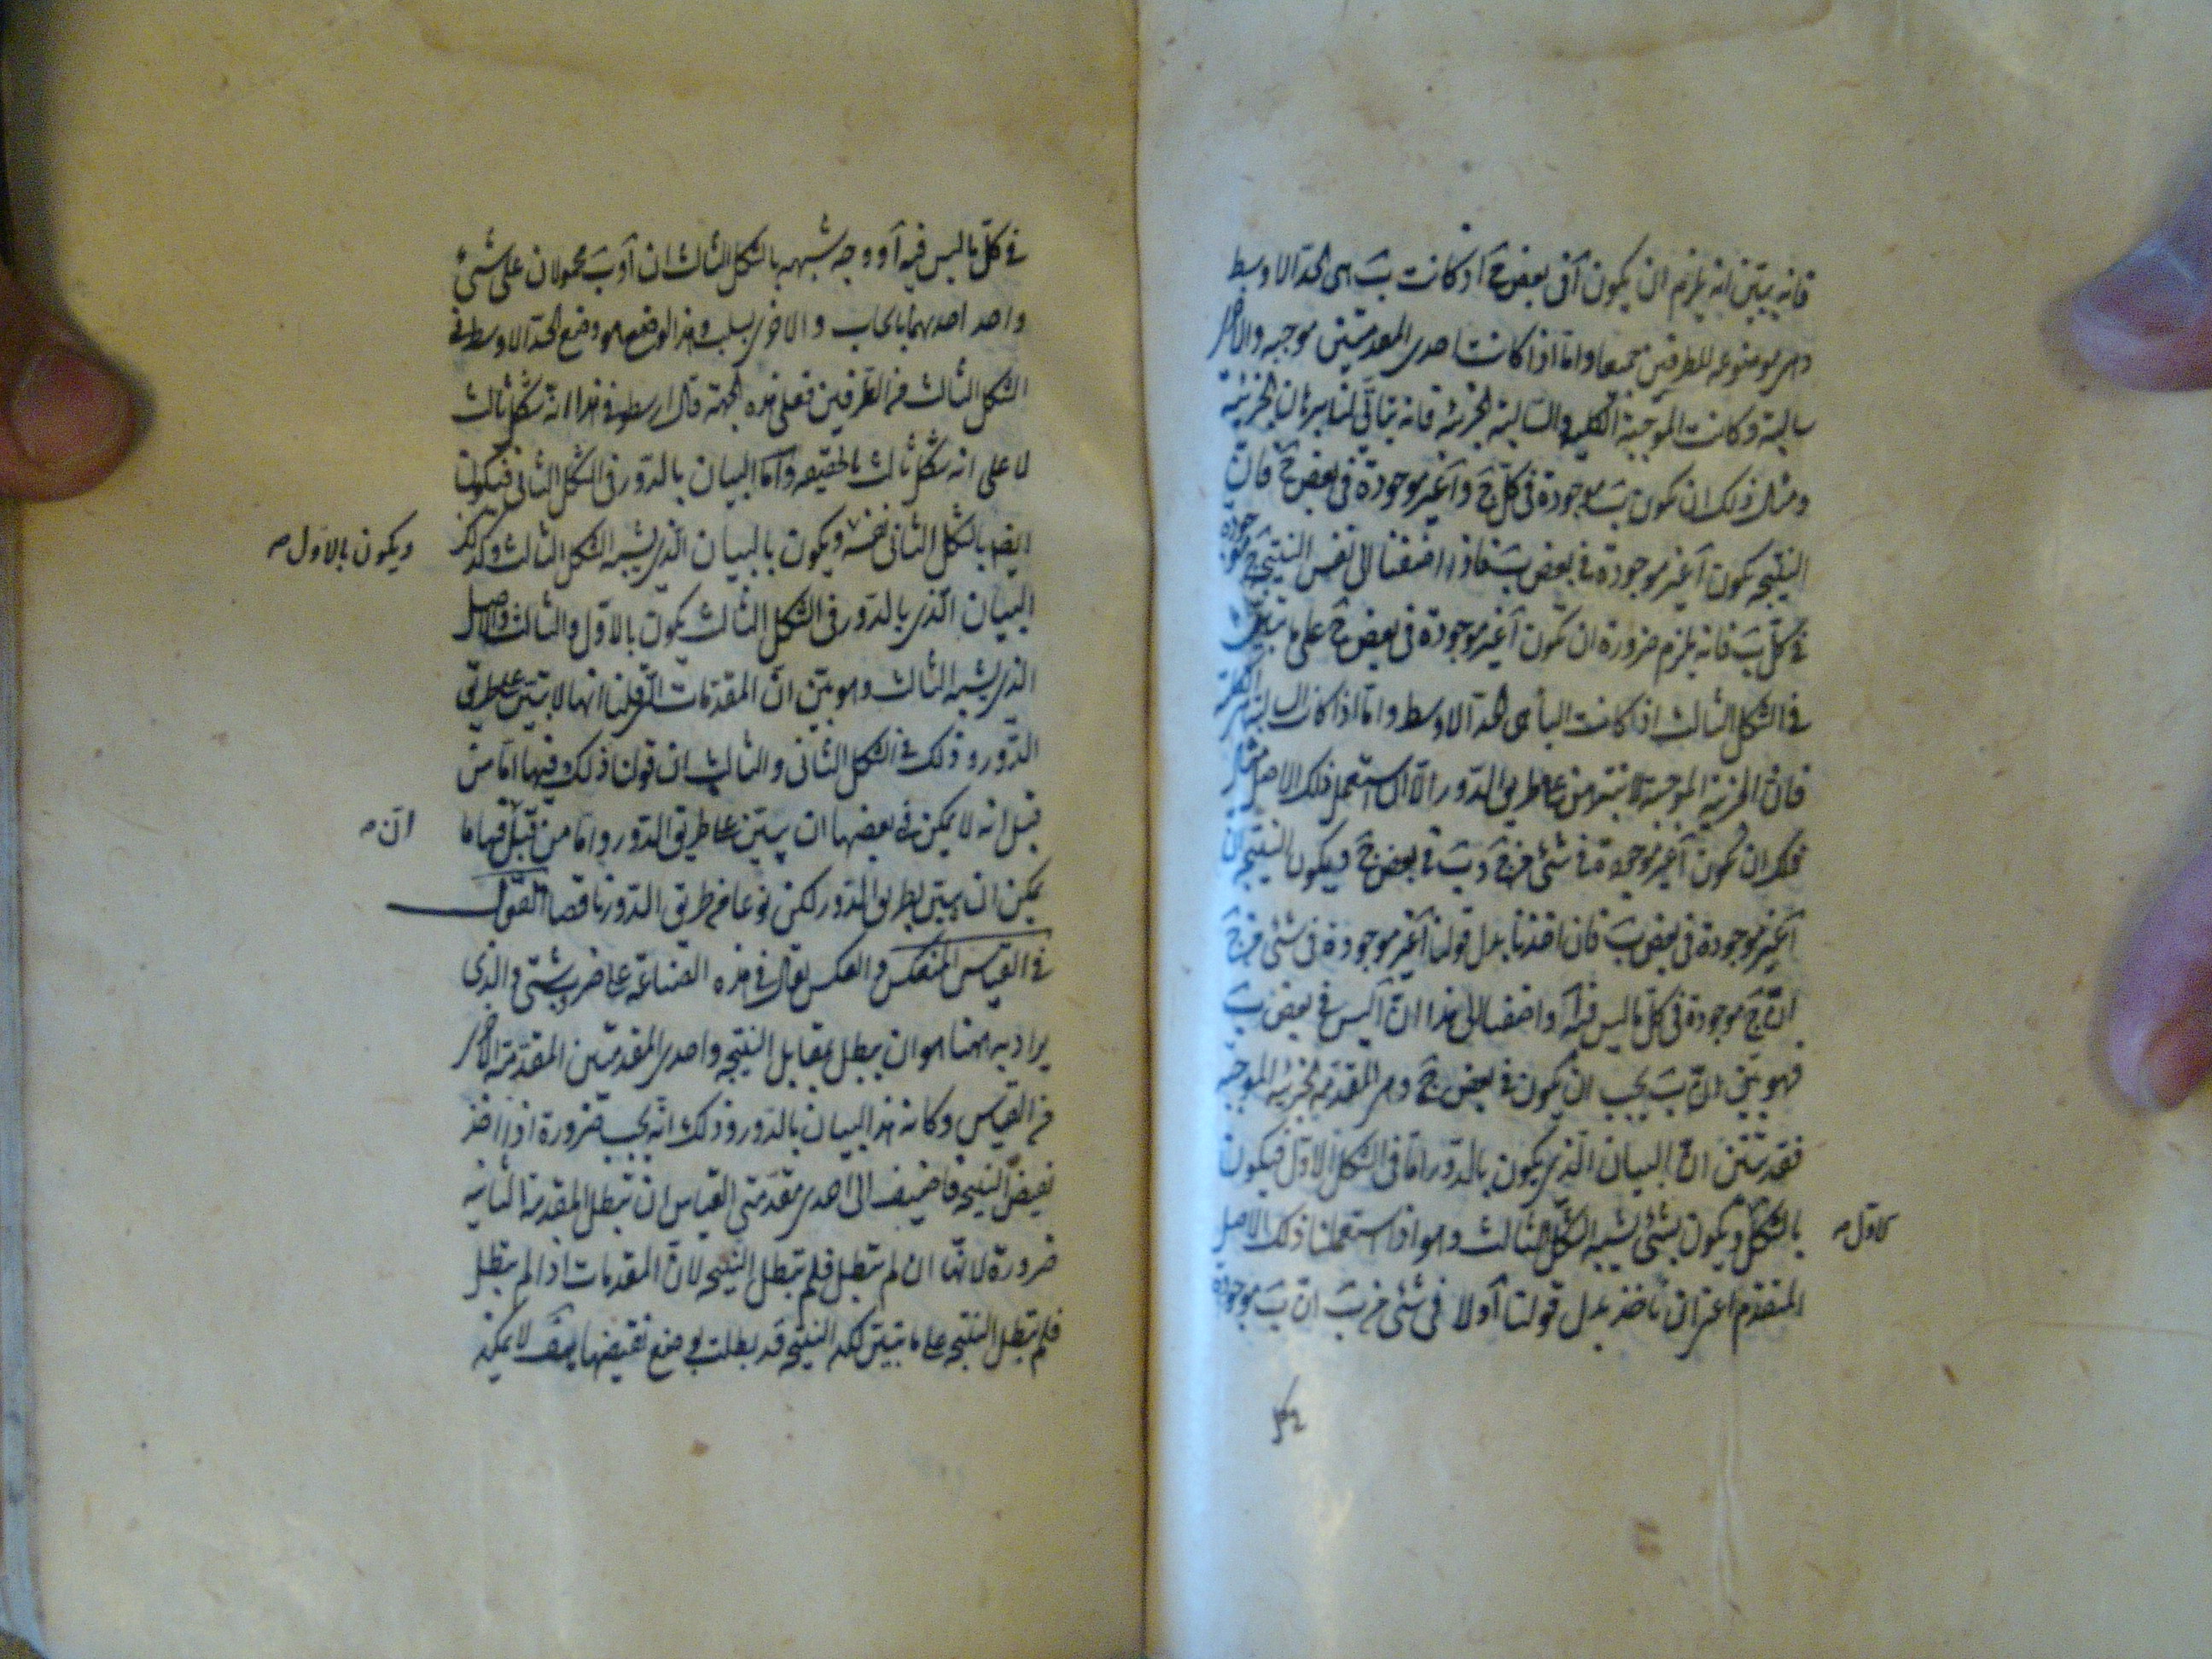 فانه يبيّن انه يلزم ان يكون آ فى بعض جَ اذ كانت بَ هى الحدّ الاوسط
وهى موضوعة للطرفين جميعا وامّا اذا كانت احدى المقدمتين موجبه والاخرى
سالبة وكانت الموجبة الكلية والسالبة الجزئية فانه يتأتى لنا برهان الجزئية
ومثال ذلك ان تكون بَ موجودة فى كل جَ وآ غير موجودة فى بعض جَ فانّ
النتيجه تكون آ غير موجودة فى بعض بَ فاذا اضفنا الى نفس النتيجة جَ موجودة
فى كلّ بَ فانه يلزم ضرورة ان تكون آ غير موجودة فى بعض جَ على ما تبيّن
فى الشكل الثالث اذا كانت البا هى الحدّ الاوسط وامّا اذا كان السالبة هى الكلية
فان الجزئية الموجبة لا تتبرهن على طريق الدّور الّا ان استعمل ذلك الاصل مثال
ذلك ان تكون آ غير موجودة فى شئ من جَ وبَ فى بعض جَ فيكون النتيجه ان
آ غير موجودة فى بعض بَ فان اخذنا بدل قولنا آ غير موجودة فى شئ من جَ
انّ جَ موجودة فى كلّ ما ليس فيه آ واضفنا الى هذا انّ آ ليس فى بعض بَ
فهو بيّن انّ بَ يجب ان يكون فى بعض جَ وهى المقدمة الجزئية الموجبة
فقد تبيّن انّ البيان الّذى يكون بالدّور امّا فى الشكل الاوّل فيكون
بالشكل ويكون بشئ يشبه الشكل الثالث وهو اذا استعملنا ذلك الاصل
الاول صح
المتقدم اعنى ان نأخذ بدل قولنا آ ولا فى شئ من بَ انّ بَ موجودة
فى كل
فى كلّ ما ليس فيه آ ووجه شبهه بالشكل الثالث ان آ وبَ محمولان على شئ
واحد احدهما بايجاب والاخرى بسلب وهذا الوضع هو وضع الحدّ الاوسط فى
الشكل الثالث من الطرفين فعلى هذه الجهة قال ارسطو فى هذا انه شكل ثالث
لا على انه شكل ثالث بالحقيقه وامّا البيان بالدّور فى الشكل الثانى فيكون
ايضا بالشكل الثانى نفسه ويكون بالبيان الّذى يشبه الشكل الثالث وكذلك
ويكون بالاول صح
البيان الّذى بالدّور فى الشكل الثالث يكون بالاوّل والثالث والاصل
الذى يشبه الثالث وهو بيّن انّ المقدمات الّتى قلنا انها لا تتبيّن على طريق
الدّور وذلك فى الشكل الثانى والثالث ان قولنا ذلك فيها امّا من
قبل انه لا يمكن فى بعضها ان يبيّن على طريق الدّور وامّا من قبل فيها ما
انّ صح
يمكن ان يبيّن بطريق الدّور لكن نوعا من طريق الدّور ناقصا القول
فى القياس المنعكس والعكس يقال فى هذه الصناعة على ضروب شتى والذى
يراد به ههنا هو ان يبطل بمقابل النتيجه واحدى المقدمتين المقدّمة الاخرى
من القياس وكانه هذا البيان بالدّور وذلك انّه يجب ضرورة اذا اخذ
نقيض النتيجه فاضيف الى احدى مقدّمتى القياس ان تبطل المقدمة الثانية
ضرورة لانّها ان لم تبطل فلم تبطل النتيجه لانّ المقدمات اذا لم تبطل
فلم تبطل النتيجه على ما تبيّن لكن النتيجه قد بطلت بوضع نقيضها